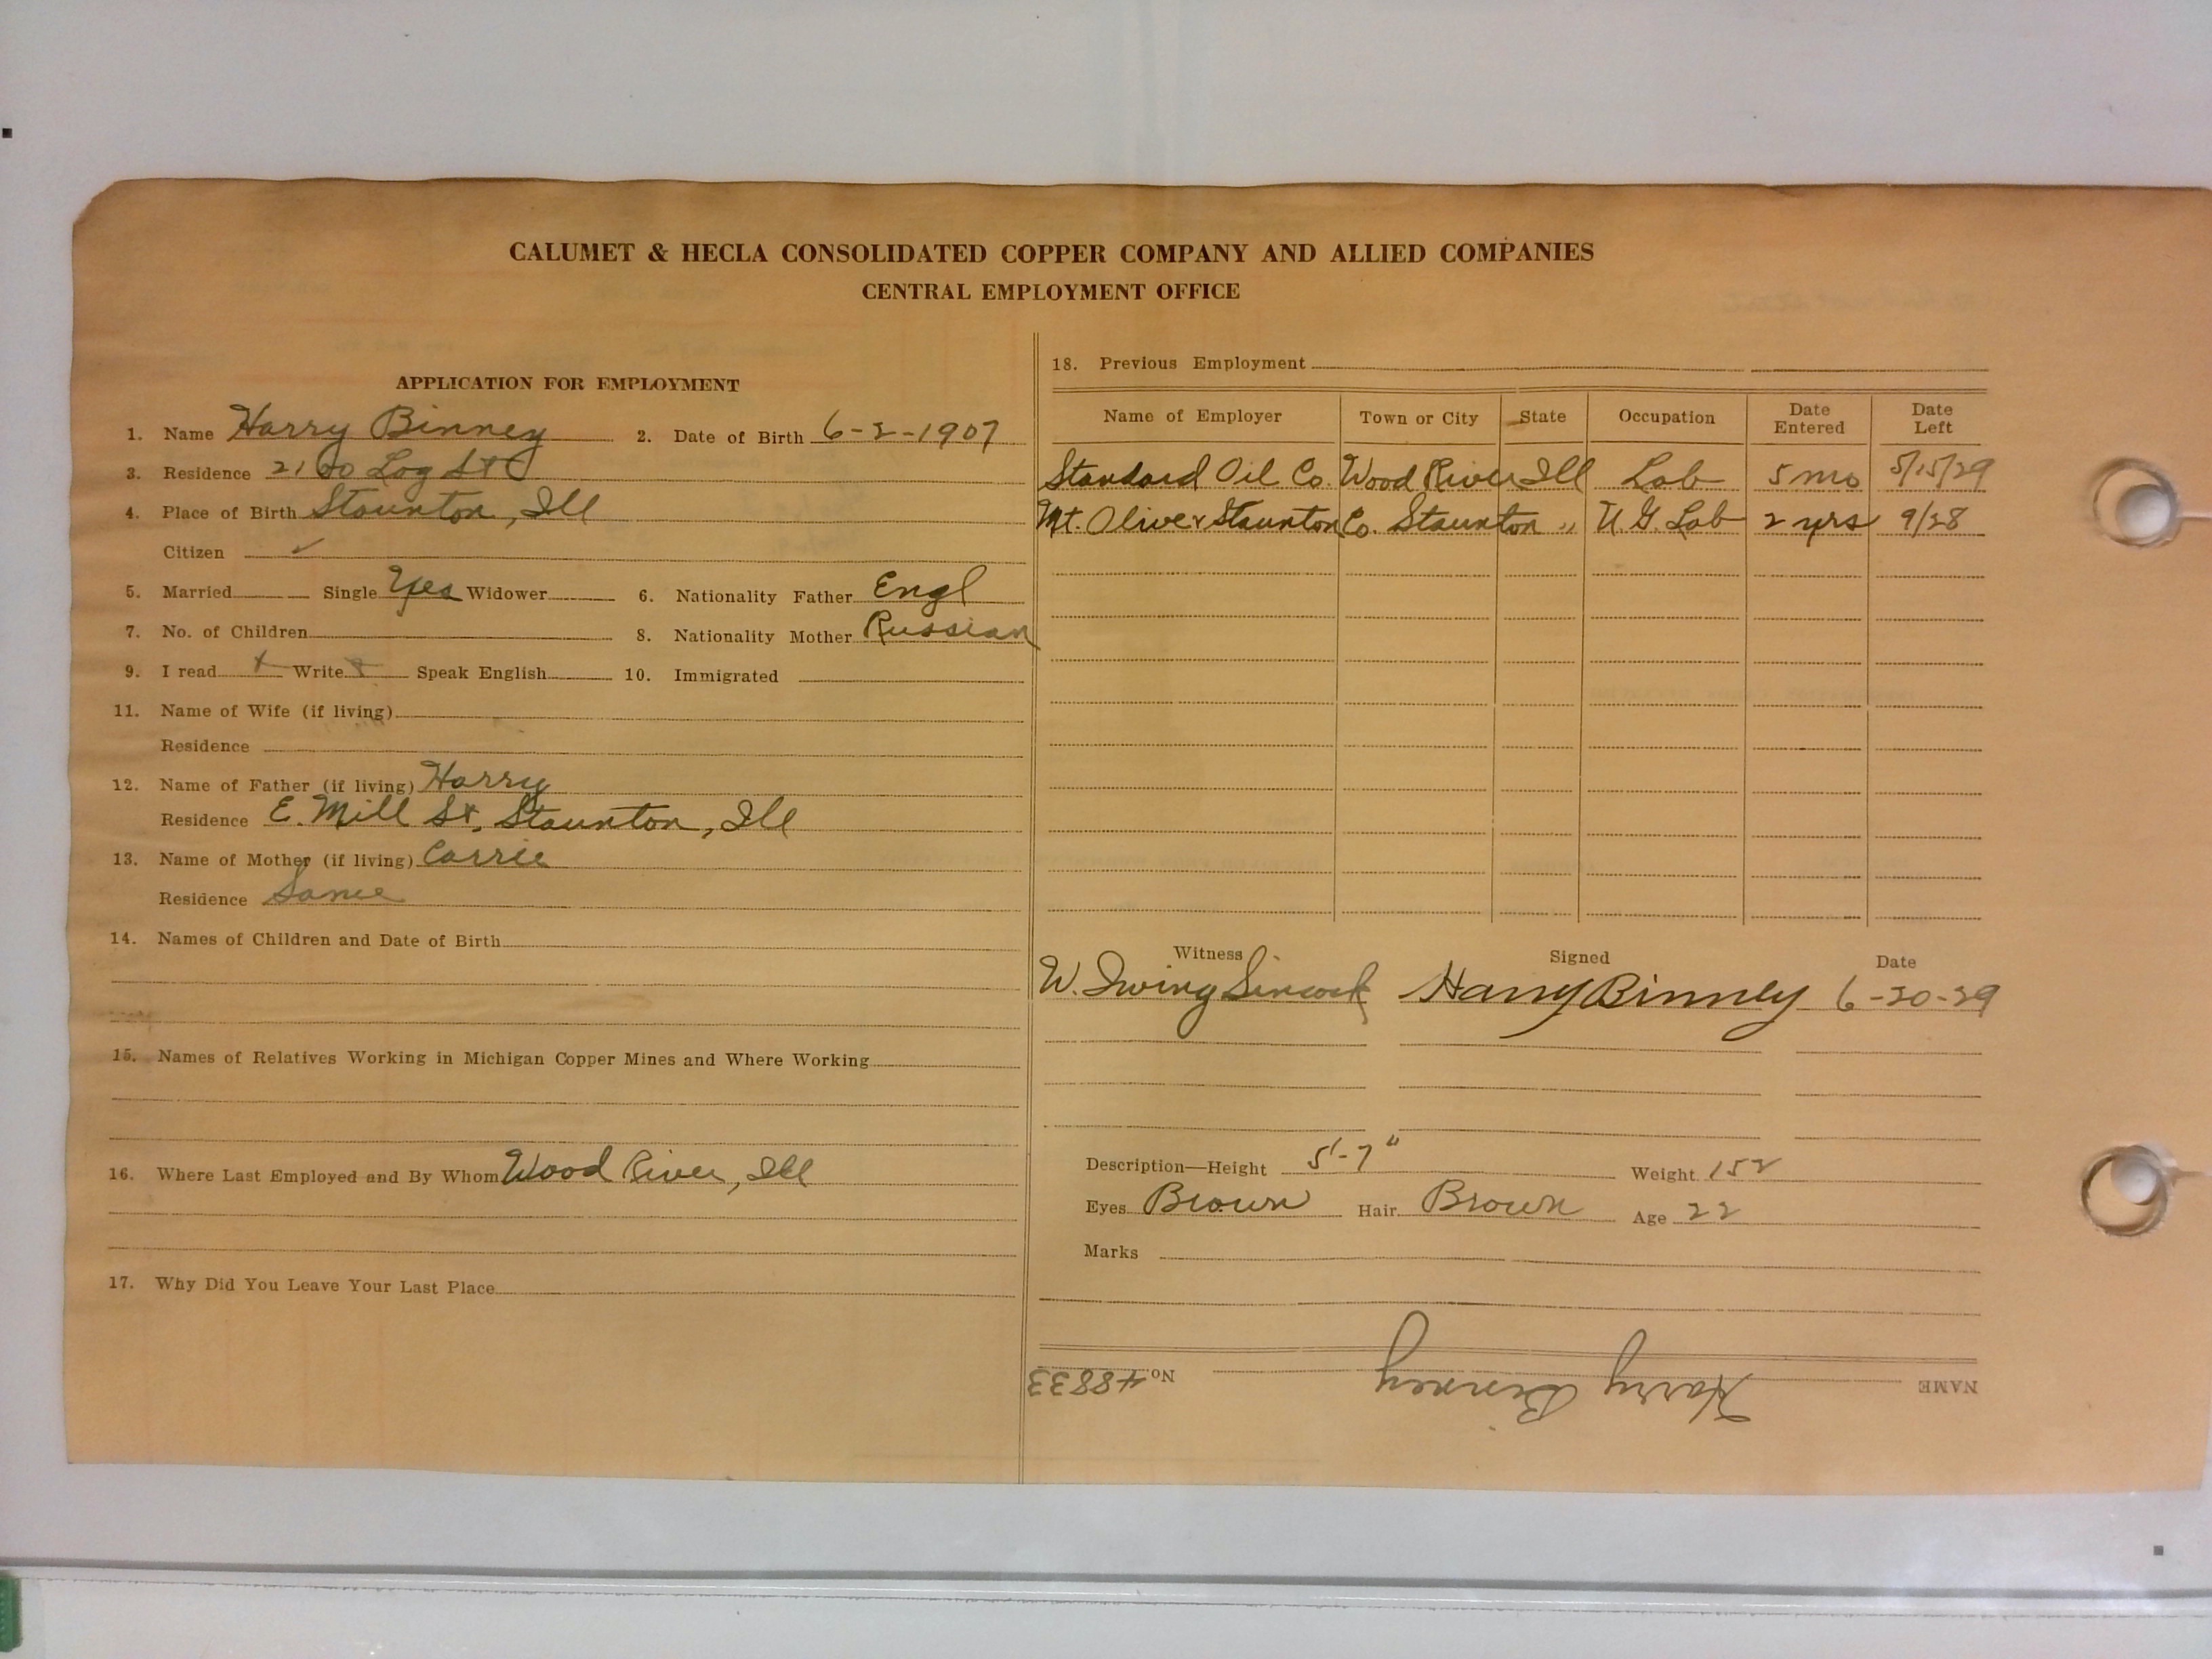 CALUMET & HECLA CONSOLIDATED COPPER COMPANY AND ALLIED COMPANIES
CENTRAL EMPLOYMENT OFFICE
APPLICATION FOR EMPLOYMENT
1. Name Harry Binney 2. Date of Birth 6-2-1907
3. Residence Log St
4. Place of Birth Staunton, Ill
Citizen ✓
5. Married Single Yes Widower 6. Nationality Father Engl
7. No. of Children 8. Nationality Mother Russian
9. I read x Write x Speak English 10. Immigrated
11. Name of Wife (if living)
Residence
12. Name of Father (if living) Harry
Residence E. Mill St, Staunton, Ill
13. Name of Mother (if living) Carrie
Residence Same
14. Names of Children and Date of Birth
15. Names of Relatives Working in Michigan Copper Mines and Where Working
16. Where Last Employed and By Whom Wood River, Ill
17. Why Did You Leave Your Last Place
18. Previous Employment
Name of Employer Town or City State Occupation Date Entered Date Left
Standard Oil Co. Wood River Ill Lab 5 mo 5/15/29
Mt. Olive & Staunton Co. Staunton " U.G. Lab 2 yrs 9/28
Witness Signed Date
W. Irving Harry Binney 6-20-29
Description—Height 5'-7" Weight 152
Eyes Brown Hair Brown Age 22
Marks
NAME Harry Binney No. 48833